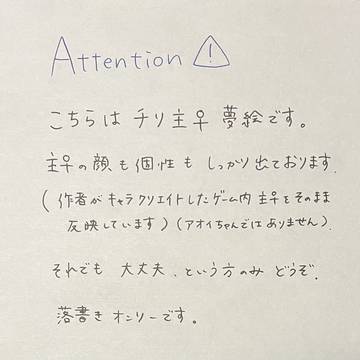 Attention ⚠
こちらは チリ主♀ 夢絵です。
主♀の顔も個性も しっかり出ております.
(作者がキャラクリエイトしたゲーム内 主♀をそのまま
反映しています)(アオイちゃんではありません).
それでも 大丈夫、という方のみ どうぞ.
落書きオンリーです。